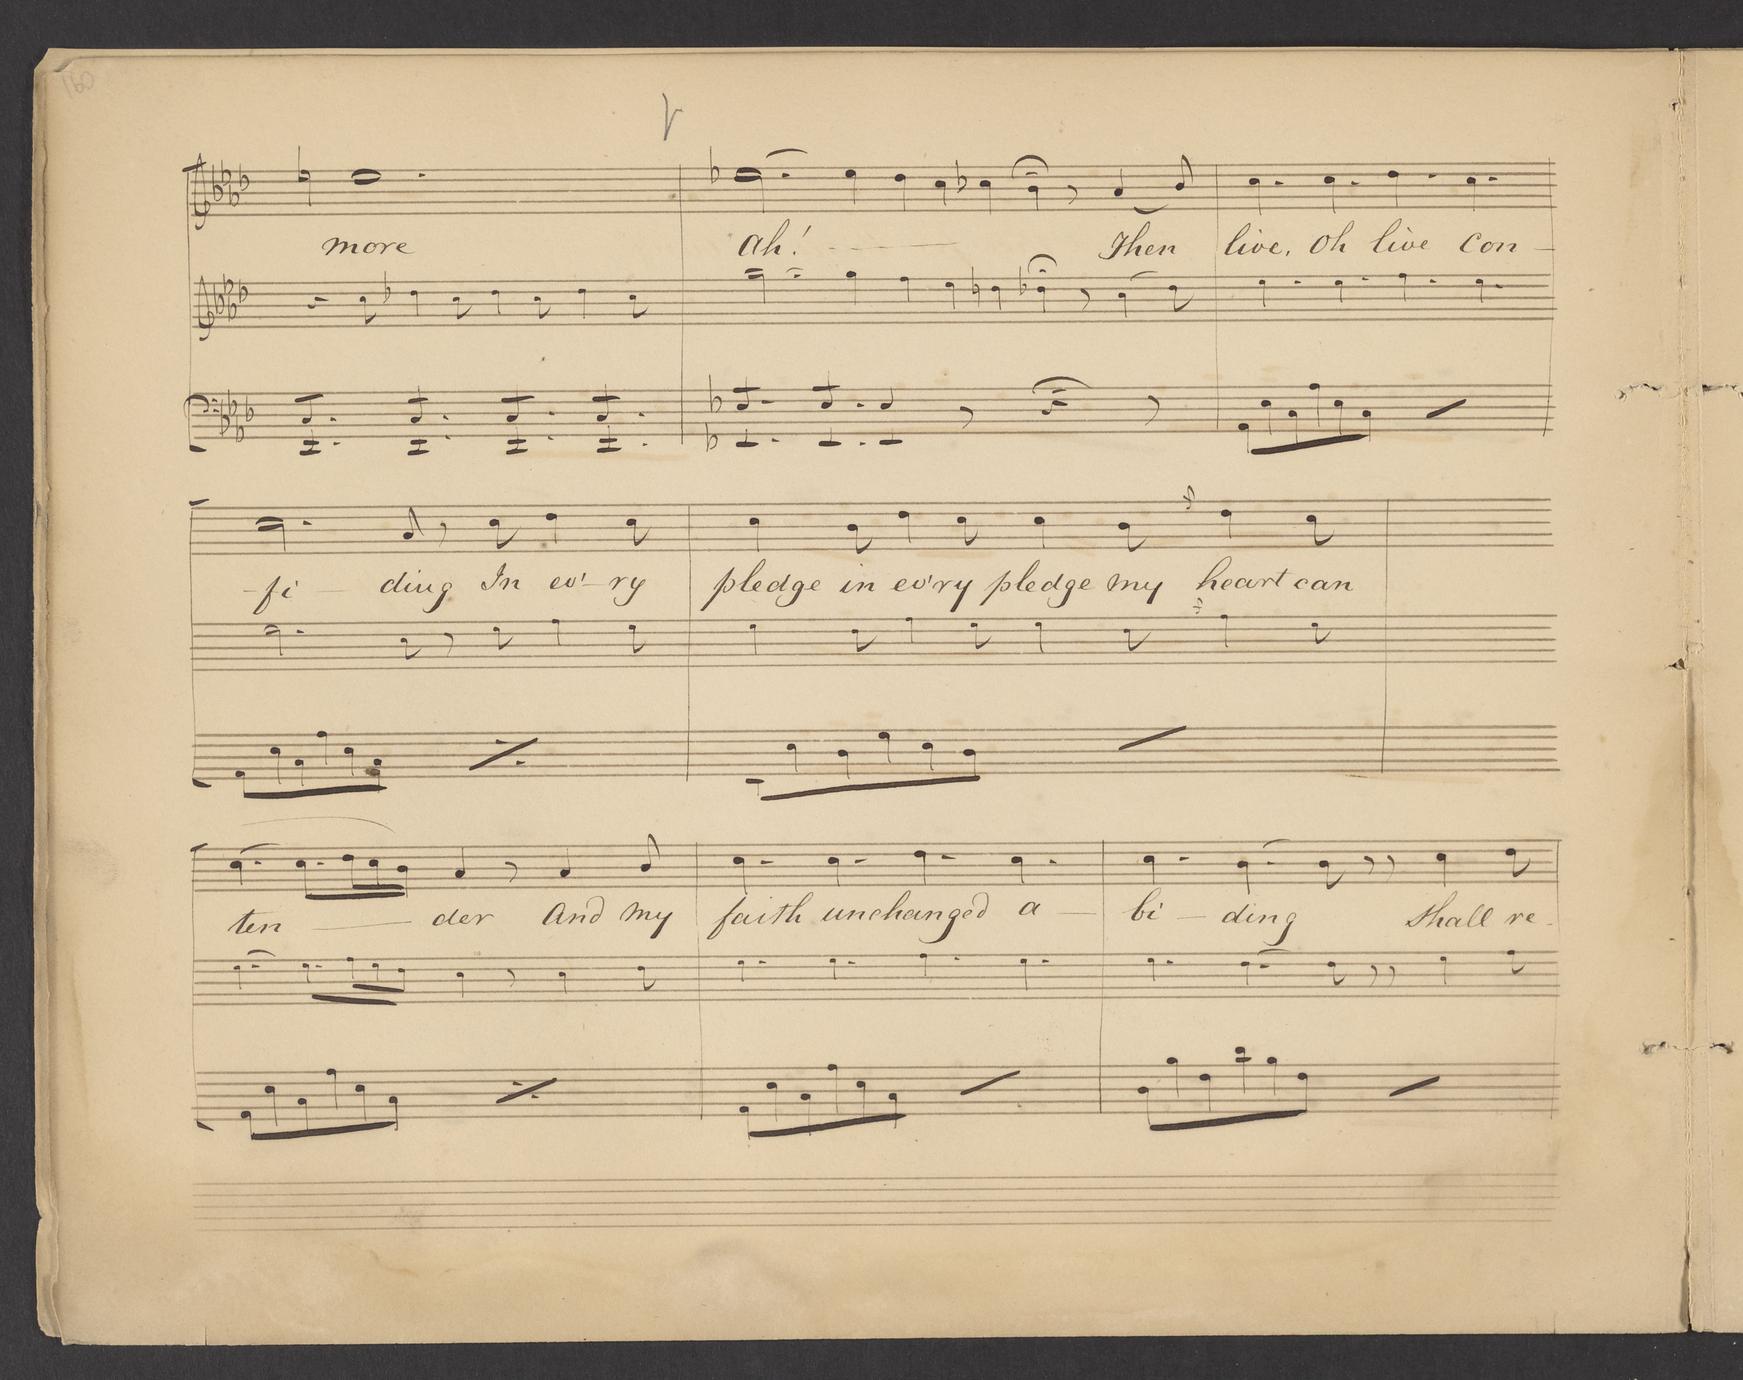 160
more ah! - - - Then live, Oh live Con -
-fi - ding In ev'-ry pledge in ev'ry pledge my heart can
ten - der And my faith unchanged a - bi - ding Shall re-